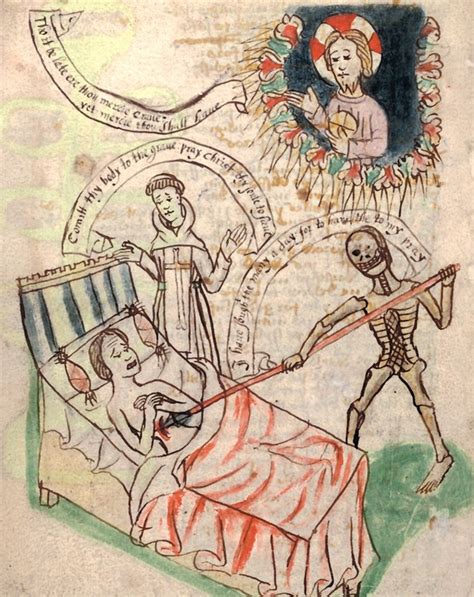 Tho it be late ere thou mercie craue
yet mercie thou shalt haue
Comitt thy body to the graue pray Christ thy soule to saue
I haue sought the many a day for to haue the to my pray